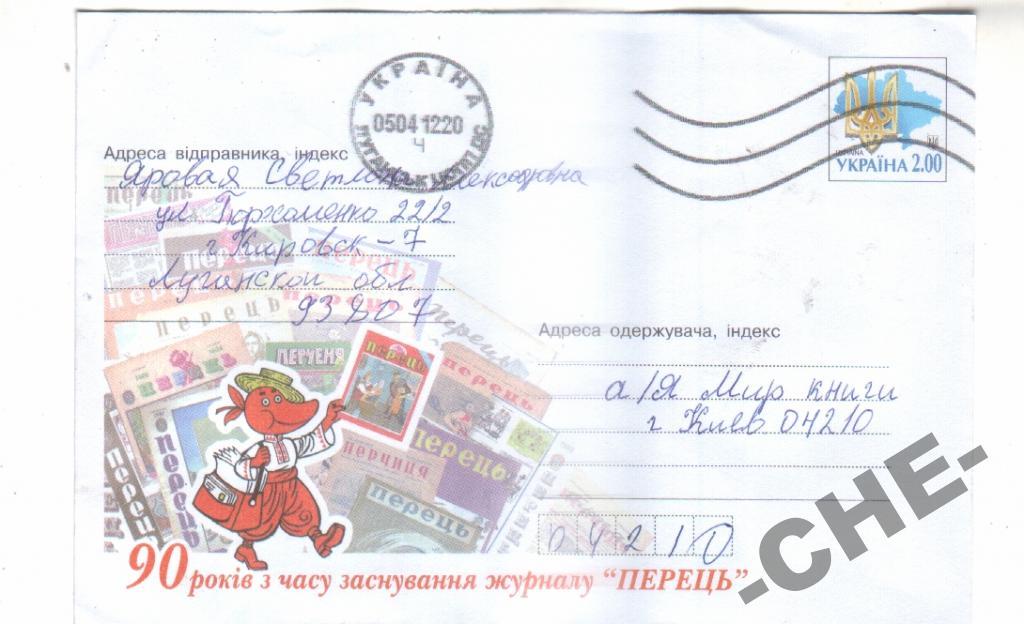 УКРАЇНА
05041220
Ч
УКРАЇНА 2.00
Адреса відправника, індекс
Яровая Светлана
ул 22/2
г Кировск-7
Луганской обл
93807
Адреса одержувача, індекс
а/я Мир книги
г Киев 04210
04210
перець
перець
ПЕРЧЕНЯ
перець
перець
перець
перець
перець
перчиця
перець
перець
90 років з часу заснування журналу "ПЕРЕЦЬ"
-CHE-